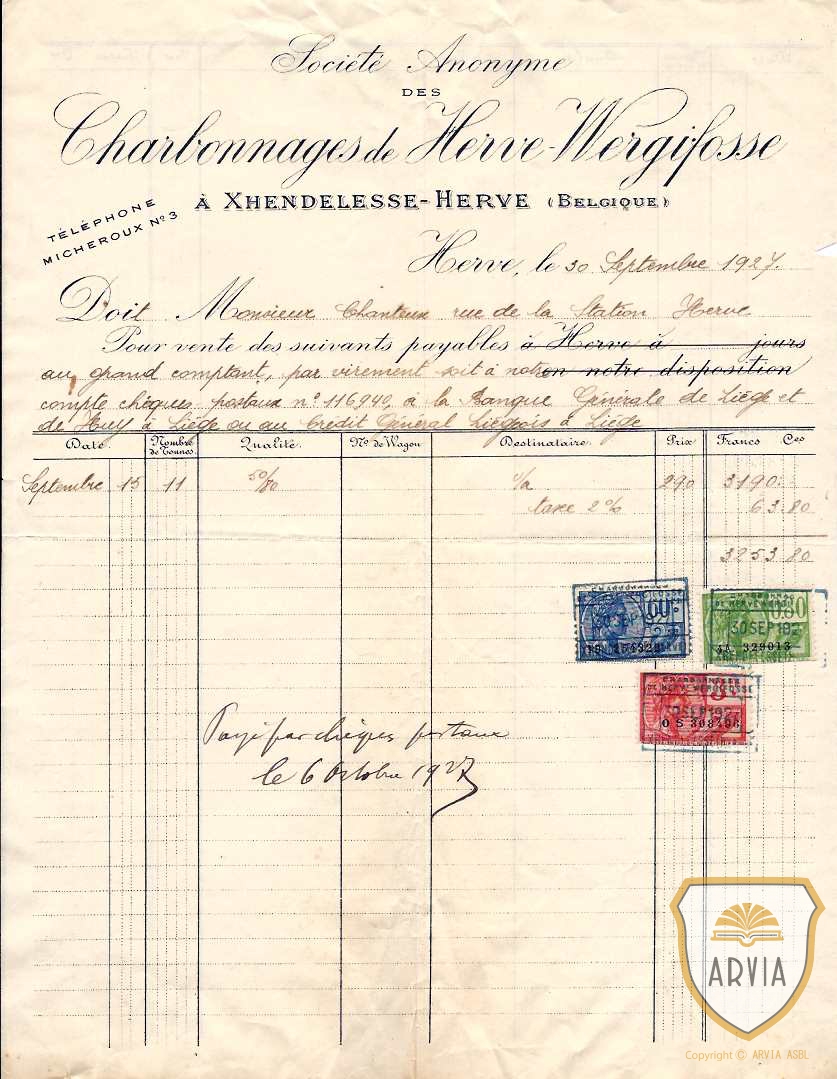 Société Anonyme
DES
Charbonnages de Herve-Wergifosse
À XHENDELESSE-HERVE (BELGIQUE)
TÉLÉPHONE
MICHEROUX Nº 3
Herve, le 30 Septembre 1927.
Doit Monsieur Chanteux rue de la Station Herve
Pour vente des suivants payables à Herve à jours
au grand comptant, par virement soit à notre en notre disposition
compte chèques-postaux nº 116940, a la Banque Générale de Liége et
de Huy à Liége ou au Crédit Général Liégeois à Liége
Date. Nombre de Tonnes. Qualité. Nº de Wagon Destinataire. Prix Francs Ces
Septembre 15 11 50/80 290 3190.
taxe 2% 63.80
3253.80
CHARBONNAGES
DE HERVE-WERGIFOSSE
30 SEP 192
30 SEP 192
JA 329013
CHARBONNAGES
DE HERVE-WERGIFOSSE
30 SEP 192
Payé par chèques postaux
le 6 Octobre 1927
ARVIA
Copyright © ARVIA ASBL